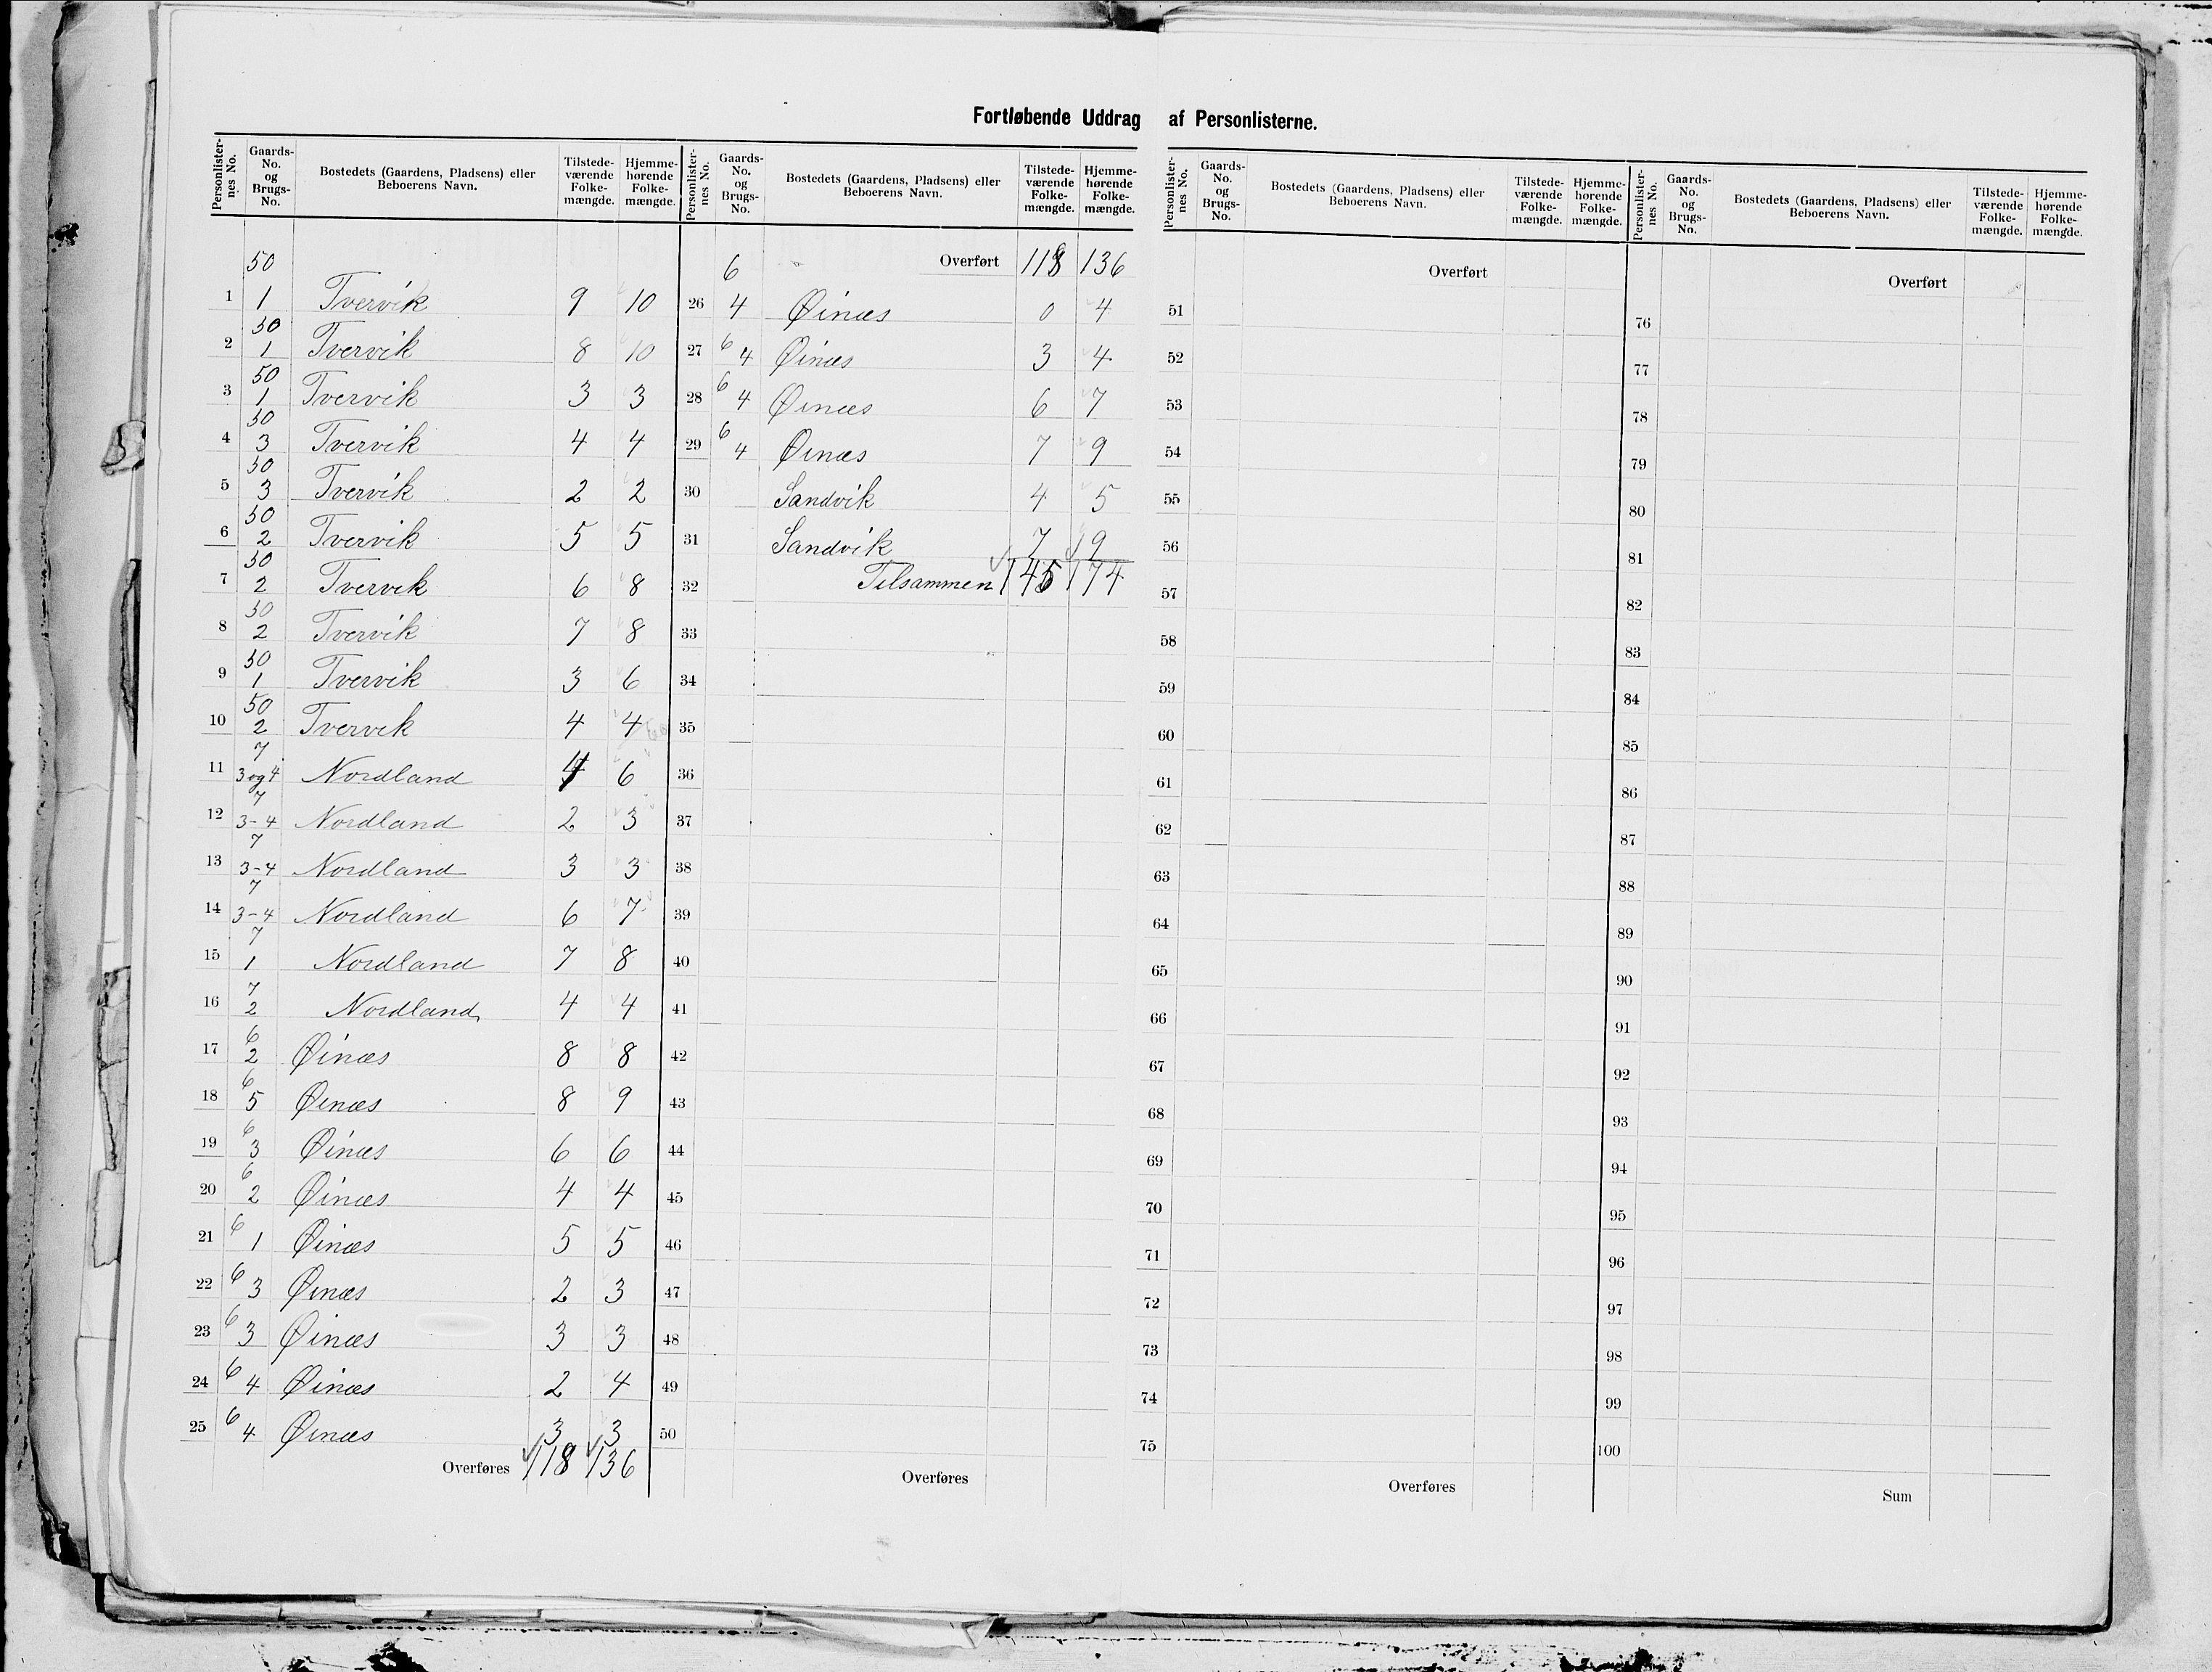 Fortløbende Uddrag af Personlisterne.
Personlister-nes No. | Gaards-No. og Brugs-No. | Bostedets (Gaardens, Pladsens) eller Beboerens Navn. | Tilstede-værende Folke-mængde. | Hjemme-hørende Folke-mængde.
1 | 50 1 | Tvervik | 9 | 10
2 | 50 1 | Tvervik | 8 | 10
3 | 50 1 | Tvervik | 3 | 3
4 | 50 3 | Tvervik | 4 | 4
5 | 50 3 | Tvervik | 2 | 2
6 | 50 2 | Tvervik | 5 | 5
7 | 50 2 | Tvervik | 6 | 8
8 | 50 2 | Tvervik | 7 | 8
9 | 50 1 | Tvervik | 3 | 6
10 | 50 2 | Tvervik | 4 | 4
11 | 7 3 og 4 | Nordland | 4 | 6
12 | 7 3-4 | Nordland | 2 | 3
13 | 7 3-4 | Nordland | 3 | 3
14 | 7 3-4 | Nordland | 6 | 7
15 | 7 1 | Nordland | 7 | 8
16 | 7 2 | Nordland | 4 | 4
17 | 6 2 | Øinæs | 8 | 8
18 | 6 5 | Øinæs | 8 | 9
19 | 6 3 | Øinæs | 6 | 6
20 | 6 2 | Øinæs | 4 | 4
21 | 6 1 | Øinæs | 5 | 5
22 | 6 3 | Øinæs | 2 | 3
23 | 6 3 | Øinæs | 3 | 3
24 | 6 4 | Øinæs | 2 | 4
25 | 6 4 | Øinæs | 3 | 3
Overføres 118 136
Personlister-nes No. | Gaards-No. og Brugs-No. | Bostedets (Gaardens, Pladsens) eller Beboerens Navn. | Tilstede-værende Folke-mængde. | Hjemme-hørende Folke-mængde.
Overført 118 136
26 | 6 4 | Øinæs | 0 | 4
27 | 6 4 | Øinæs | 3 | 4
28 | 6 4 | Øinæs | 6 | 7
29 | 6 4 | Øinæs | 7 | 9
30 | Sandvik | 4 | 5
31 | Sandvik | 7 | 9
32 | Tilsammen | 145 | 174
33
34
35
36
37
38
39
40
41
42
43
44
45
46
47
48
49
50
Overføres
Personlister-nes No. | Gaards-No. og Brugs-No. | Bostedets (Gaardens, Pladsens) eller Beboerens Navn. | Tilstede-værende Folke-mængde. | Hjemme-hørende Folke-mængde.
Overført
51
52
53
54
55
56
57
58
59
60
61
62
63
64
65
66
67
68
69
70
71
72
73
74
75
Overføres
Personlister-nes No. | Gaards-No. og Brugs-No. | Bostedets (Gaardens, Pladsens) eller Beboerens Navn. | Tilstede-værende Folke-mængde. | Hjemme-hørende Folke-mængde.
Overført
76
77
78
79
80
81
82
83
84
85
86
87
88
89
90
91
92
93
94
95
96
97
98
99
100
Sum